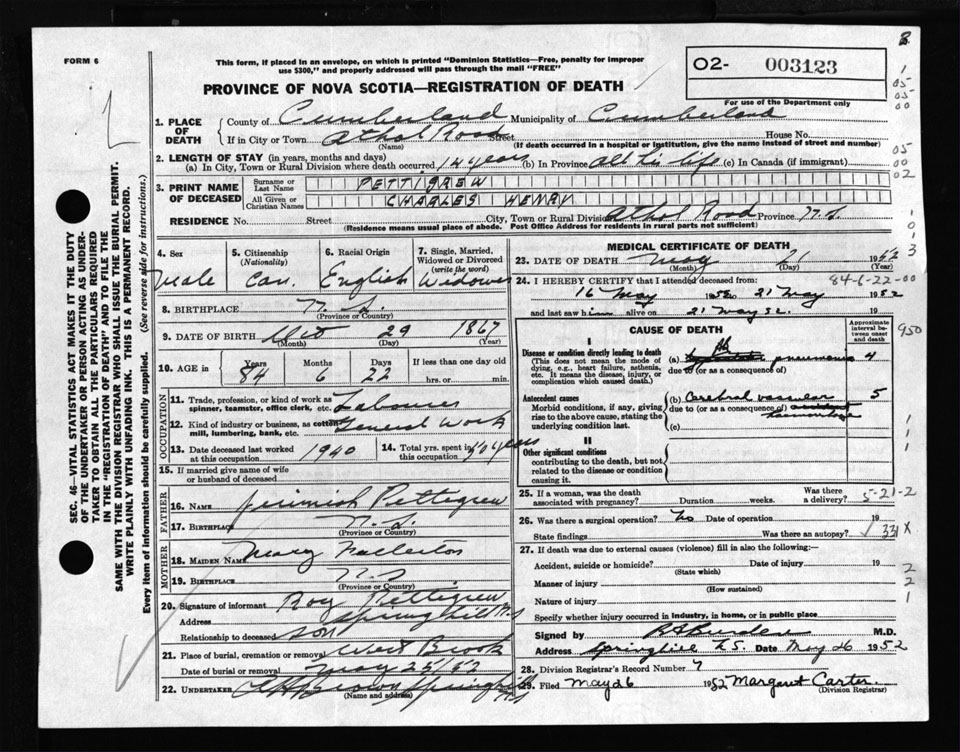 FORM 6
This form, if placed in an envelope, on which is printed "Dominion Statistics—Free, penalty for improper
use $300," and properly addressed will pass through the mail "FREE"
O2- 003123
For use of the Department only
PROVINCE OF NOVA SCOTIA—REGISTRATION OF DEATH
1. PLACE OF DEATH
County of Cumberland Municipality of Cumberland
If in City or Town Athol Road Street House No.
(Name) (If death occurred in a hospital or institution, give the name instead of street and number)
2. LENGTH OF STAY (in years, months and days)
(a) In City, Town or Rural Division where death occurred 14 years (b) In Province All his life (c) In Canada (if immigrant)
3. PRINT NAME OF DECEASED
Surname or Last Name PETTIGREW
All Given or Christian Names CHARLES HENRY
RESIDENCE No. Street City, Town or Rural Division Athol Road Province N.S.
(Residence means usual place of abode. Post Office Address for residents in rural parts not sufficient)
4. Sex Male
5. Citizenship (Nationality) Can.
6. Racial Origin English
7. Single, Married, Widowed or Divorced (write the word) Widower
8. BIRTHPLACE N.S.
(Province or Country)
9. DATE OF BIRTH Oct 29 1867
(Month) (Day) (Year)
10. AGE in Years 84 Months 6 Days 22 If less than one day old
hrs. or min.
OCCUPATION
11. Trade, profession, or kind of work as spinner, teamster, office clerk, etc. Labourer
12. Kind of industry or business, as cotton mill, lumbering, bank, etc. General Work
13. Date deceased last worked at this occupation 1940
14. Total yrs. spent in this occupation 40 years
15. If married give name of wife or husband of deceased
FATHER
16. NAME Jerimiah Pettigrew
17. BIRTHPLACE N.S.
(Province or Country)
MOTHER
18. MAIDEN NAME Mary Fullerton
19. BIRTHPLACE N.S.
(Province or Country)
20. Signature of informant Roy Pettigrew
Address Springhill N.S
Relationship to deceased son
21. Place of burial, cremation or removal West Brook
Date of burial or removal May 25/52
22. UNDERTAKER Brown Springhill N.S
(Name and address)
MEDICAL CERTIFICATE OF DEATH
23. DATE OF DEATH May 21 1952
(Month) (Day) (Year)
24. I HEREBY CERTIFY that I attended deceased from: 84-6-22-00
16 May 1952 21 May 1952
and last saw him alive on 21 May 52. 19
CAUSE OF DEATH
Approximate interval between onset and death
I
Disease or condition directly leading to death
(This does not mean the mode of dying, e.g., heart failure, asthenia, etc. It means the disease, injury, or complication which caused death.)
(a) pneumonia 4
due to (or as a consequence of)
Antecedent causes
Morbid conditions, if any, giving rise to the above cause, stating the underlying condition last.
(b) Cerebral vascular 5
due to (or as a consequence of) accident
(c)
II
Other significant conditions
contributing to the death, but not related to the disease or condition causing it.
25. If a woman, was the death associated with pregnancy? Duration weeks. Was there a delivery? 5-21-2
26. Was there a surgical operation? No Date of operation 19
State findings Was there an autopsy? 331 X
27. If death was due to external causes (violence) fill in also the following:—
Accident, suicide or homicide? Date of injury 19
(State which)
Manner of injury
(How sustained)
Nature of injury
Specify whether injury occurred in industry, in home, or in public place
Signed by M.D.
Address Springhill N.S. Date May 26 1952
28. Division Registrar's Record Number 7
29. Filed May 26 1952 Margaret Carter
(Division Registrar)
SEC. 46—VITAL STATISTICS ACT MAKES IT THE DUTY
OF THE UNDERTAKER OR PERSON ACTING AS UNDER-
TAKER TO OBTAIN ALL THE PARTICULARS REQUIRED
IN THE "REGISTRATION OF DEATH" AND TO FILE THE
SAME WITH THE DIVISION REGISTRAR WHO SHALL ISSUE THE BURIAL PERMIT.
WRITE PLAINLY WITH UNFADING INK. THIS IS A PERMANENT RECORD.
Every item of information should be carefully supplied. (See reverse side for instructions.)
05
05-
00
05
00
02
950